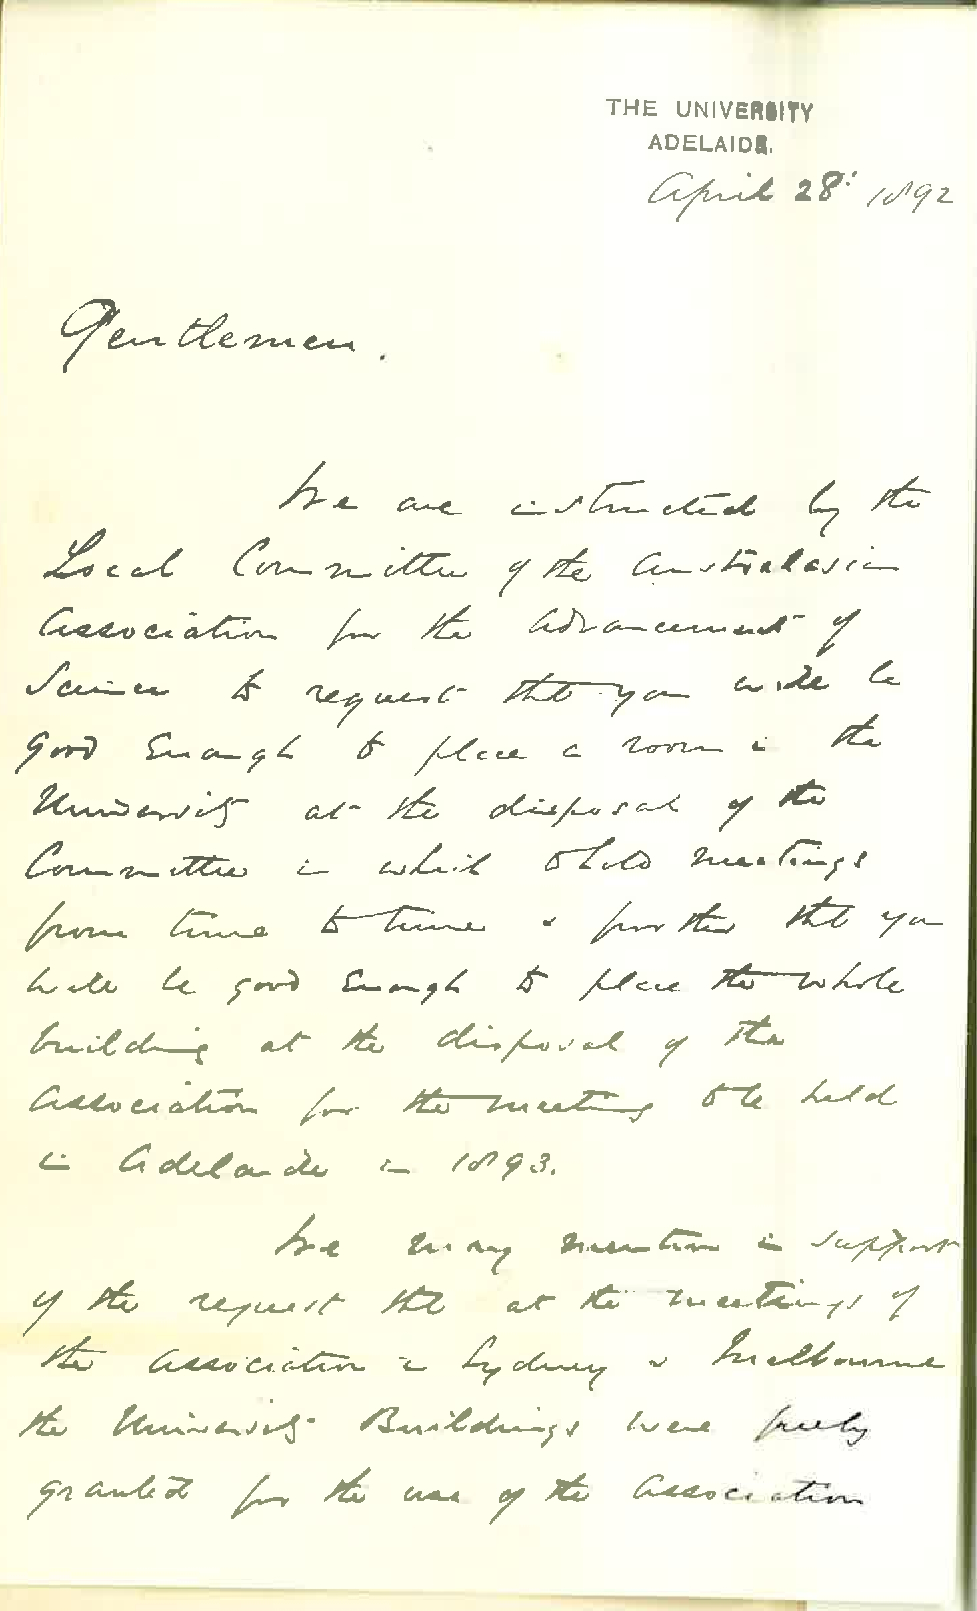 THE UNIVERSITY
ADELAIDE.
April 28: 1892
Gentlemen.
We are instructed by the
Local Committee of the Australasian
Association for the Advancement of
Science to request that you will be
good enough to place a room in the
University at the disposal of the
Committee in which to hold meetings
from time to time & further that you
will be good enough to place the whole
building at the disposal of the
Association for the meeting to be held
in Adelaide in 1893.
We may mention in support
of the request that at the meetings of
the Association in Sydney & Melbourne
the University Buildings were freely
granted for the use of the Association